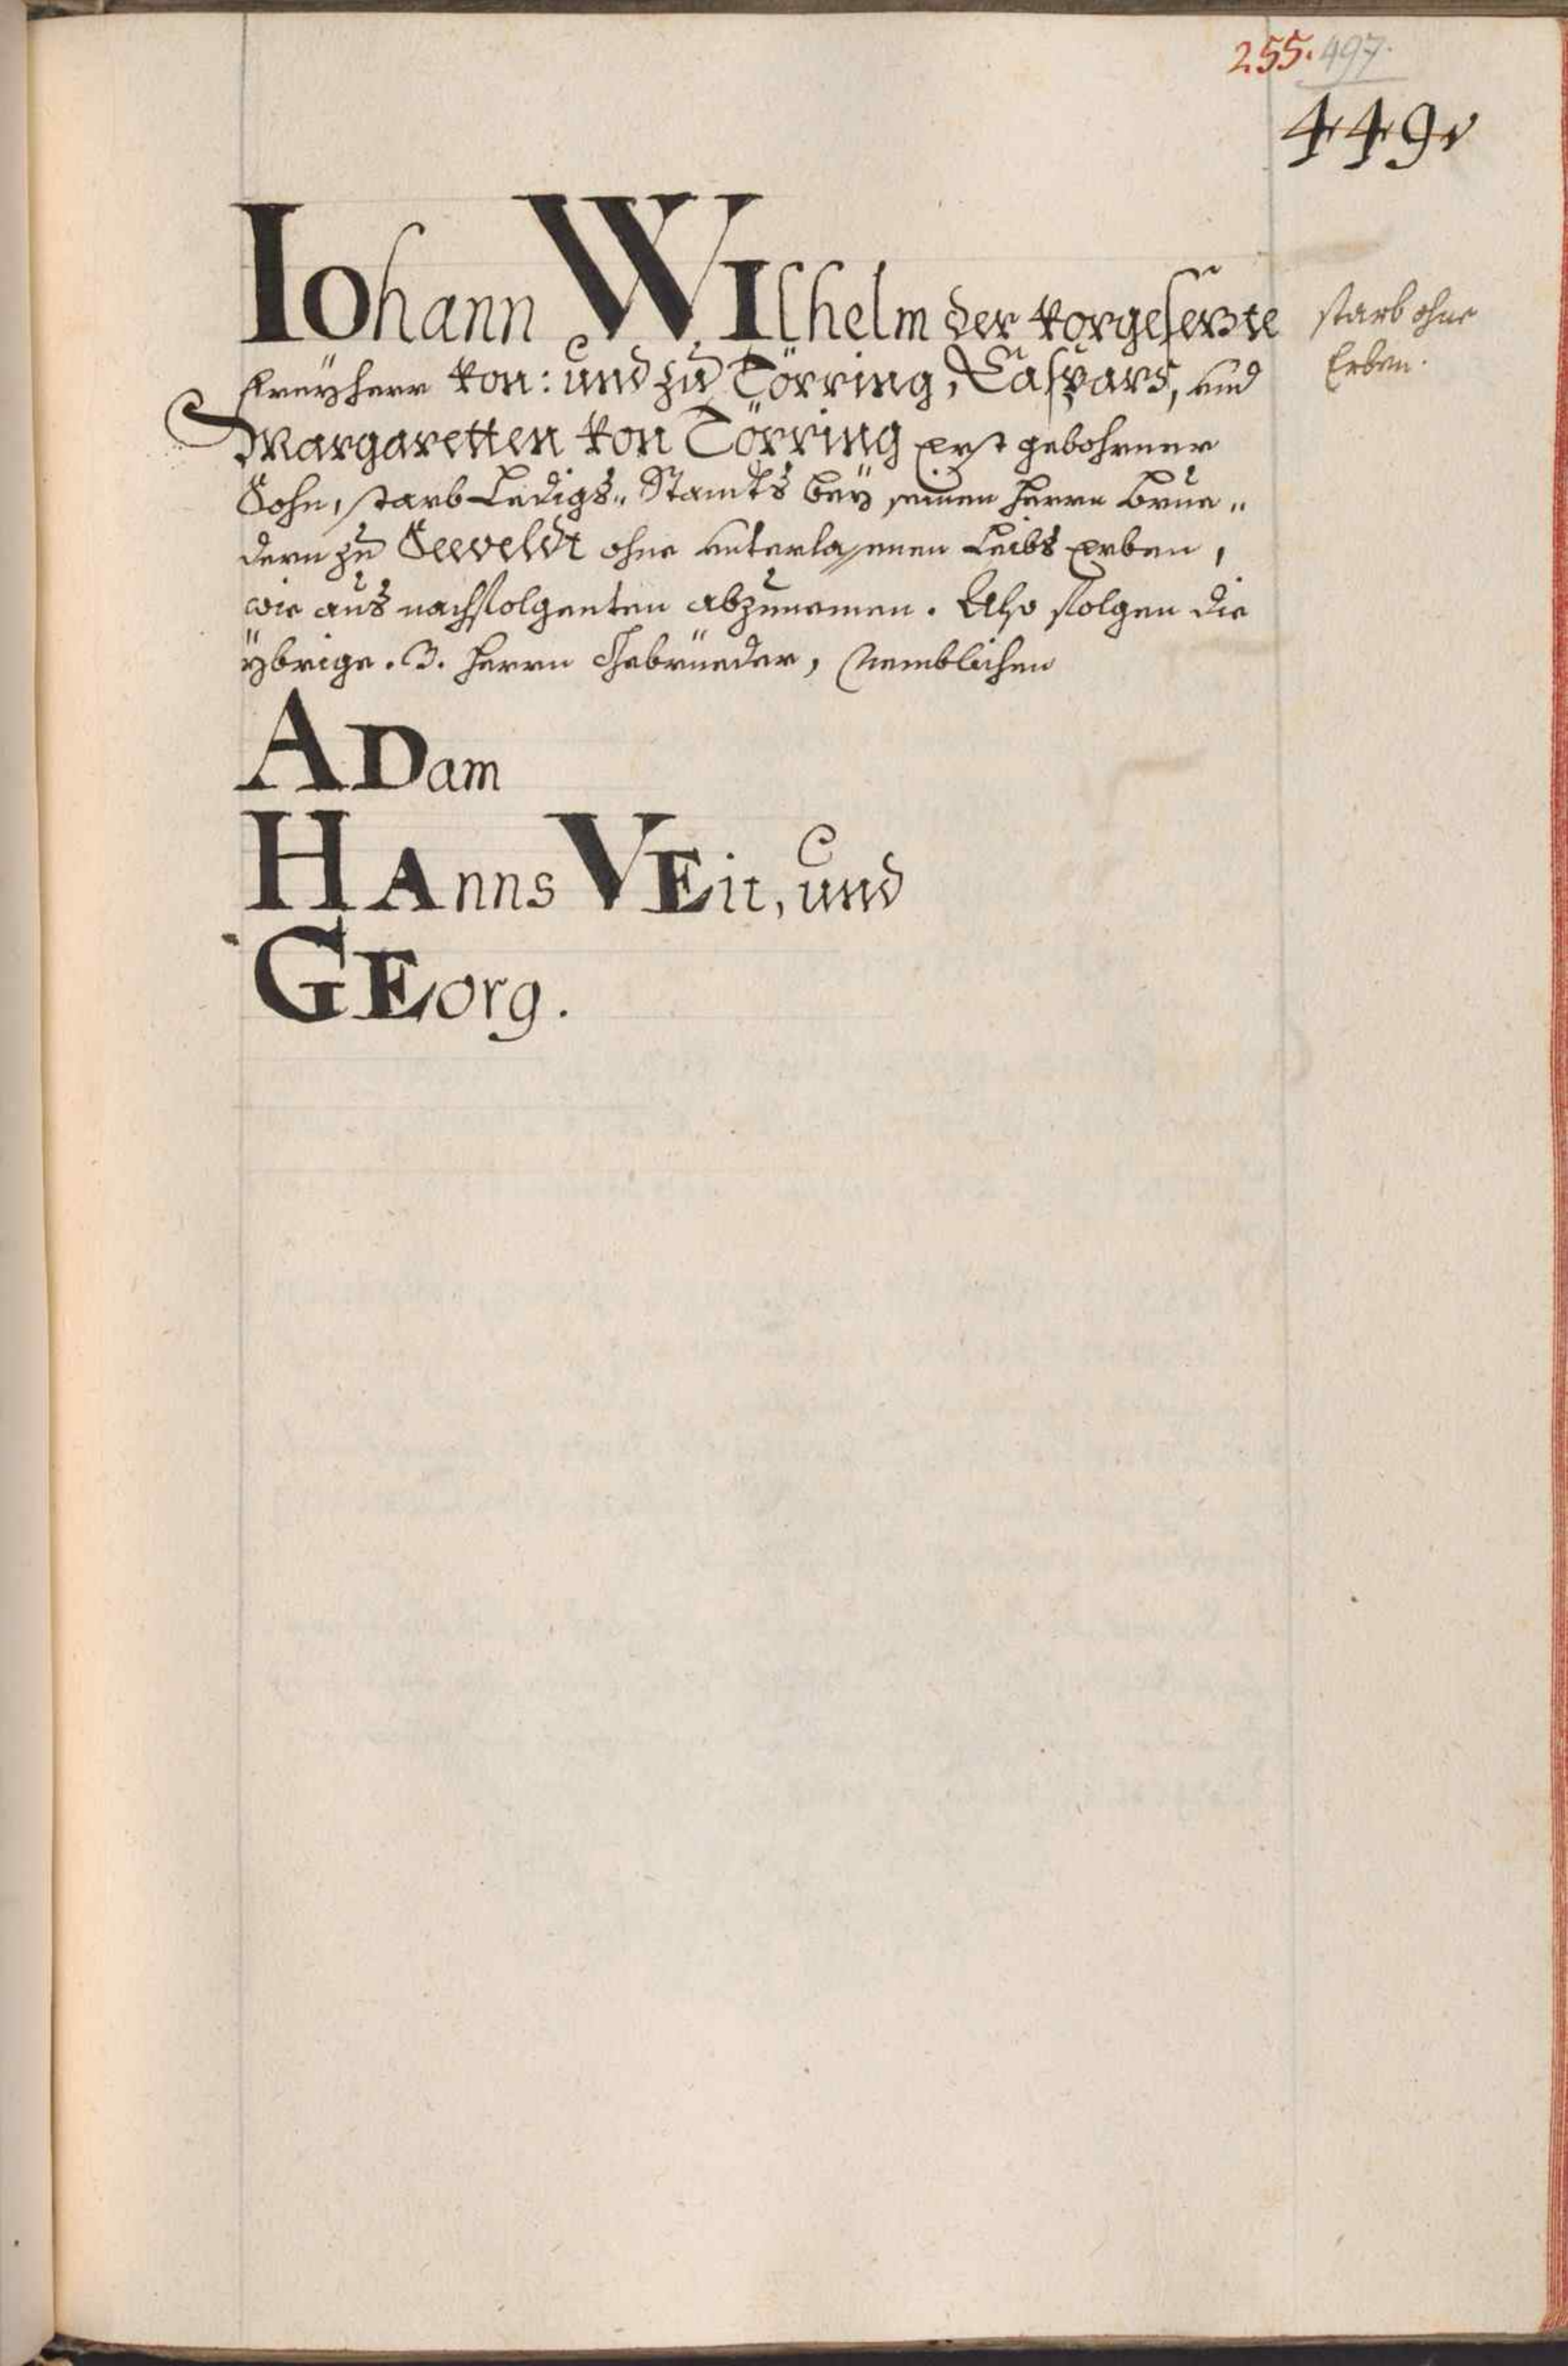 255. 497.
449.
IOhann WIlhelm der vorgesetzte
Freÿherr von: und zu Törring, Caspars, und
Margaretten von Törring erst gebohrner
Sohn, starb Ledigs„ Standts beÿ seinen Herrn Brüe„
dern zu Seeveldt ohne unterlassenen Leibs erben,
wie aus nachfolgenten abzunemen. Also folgen die
ÿbrige .3. Herrn Gebrüeder, Nemblichen
ADam
HAnns VEit, und
GEorg.
starb ohne
Erben.